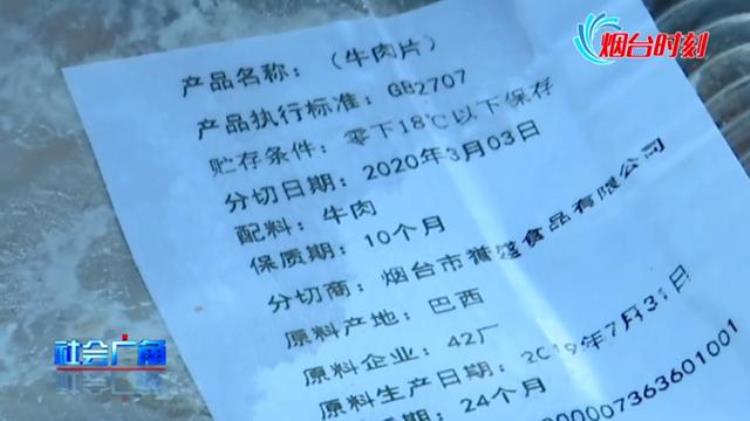 烟台时刻
产品名称：（牛肉片）
产品执行标准：GB2707
贮存条件：零下18℃以下保存
分切日期：2020年3月03日
配料：牛肉
保质期：10个月
分切商：烟台市誉盛食品有限公司
原料产地：巴西
原料企业：42厂
原料生产日期：2019年7月31日
质期：24个月
00007363601001
社会广角